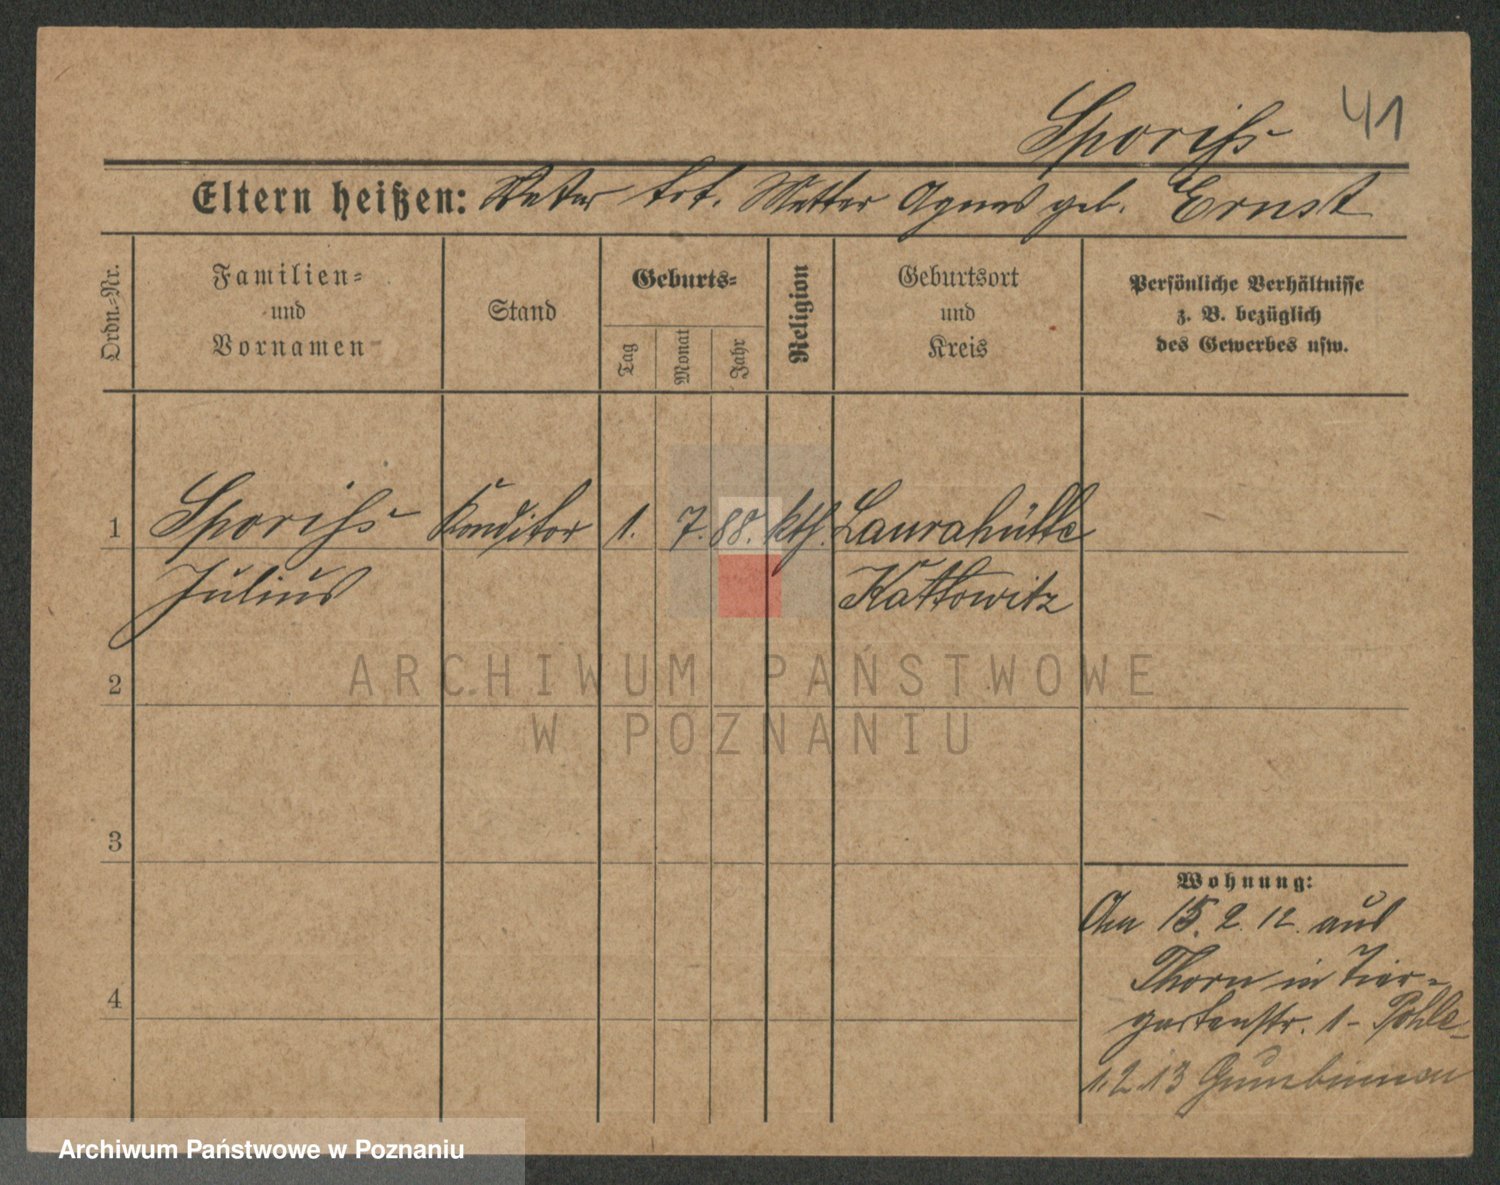 Sporihs 41
Eltern heißen: Vater tot. Mutter Agnes geb. Ernst
Ordn.-Nr.
Familien-
und
Vornamen
Stand
Geburts-
Tag
Monat
Jahr
Religion
Geburtsort
und
Kreis
Persönliche Verhältnisse
z. B. bezüglich
des Gewerbes usw.
1 Sporihs Konditor 1. 7. 88. kth. Laurahütte
Julius Kattowitz
2
ARCHIWUM PAŃSTWOWE
W POZNANIU
3
Wohnung:
Am 15. 2. 12. aus
Thorn in Tier-
4 gartenstr. 1 - Pohle
1. 2. 13 Gumbinnen
Archiwum Państwowe w Poznaniu